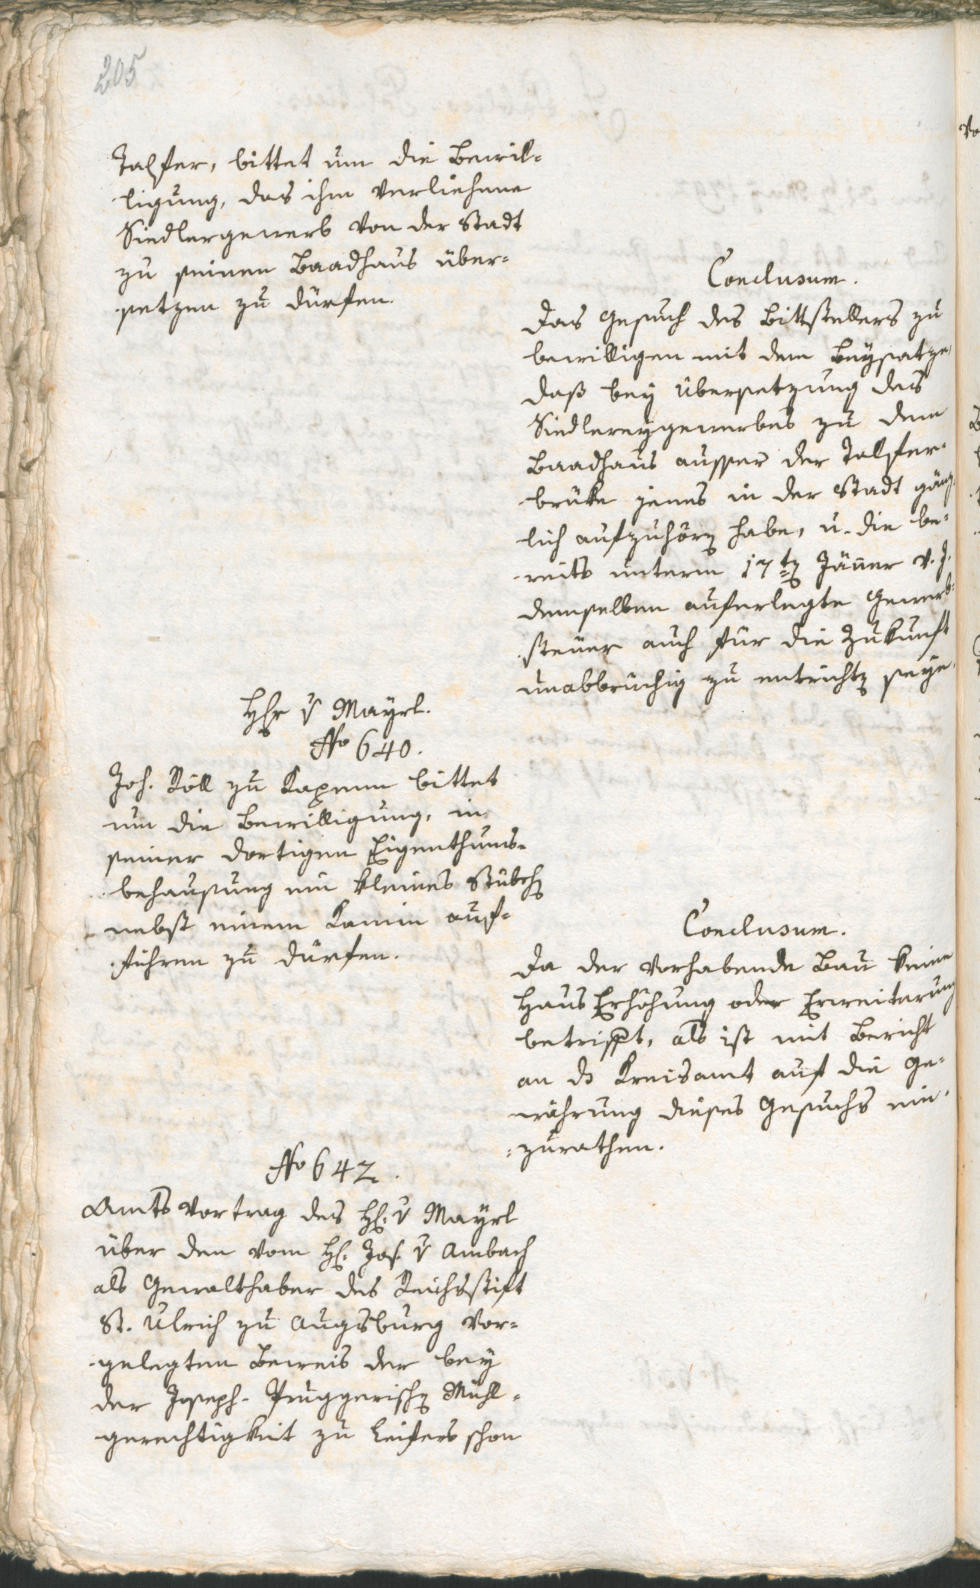 205
Talfer, bittet um die Bewil-
ligung, das ihm verliehene
Siedlergewerb von der Stadt
zu seinen Baadhaus über-
setzen zu dürfen.
Conclusum.
Das Gesuch des Bittstellers zu
bewilligen mit dem Beysatze,
daß bey Übersetzung des
Siedlereygewerbes zu dem
Baadhaus ausser der Talfer-
brüke jenes in der Stadt gänz-
lich aufzuhören habe, u. die be-
reits unterm 17ten Jäner v. J.
demselben auferlegte Gewerb-
steuer auch für die Zukunft
unabbrüchig zu entrichten seye.
Hr v Mayrl.
No 640.
Joh. Röll zu Kapenn bittet
um die Bewilligung, in
seiner dortigen Eigenthums-
behausung ein kleines Stübchen
nebst einem Kamin auf-
führen zu dürfen.
Conclusum.
Da der vorhabende Bau keine
Haus Erhöhung oder Erweiterung
betrifft, als ist mit Bericht
an ds Kreisamt auf die Ge-
währung dieses Gesuchs ein-
zurathen.
No 642.
Amts Vortrag des H. v Mayrl
über den vom H. Jos. v Ambach
als Gewalthaber des Reichsstift
St. Ulrich zu Augsburg vor-
gelegten Beweis der bey
der Joseph- Pruggerischen Mühl-
gerechtigkeit zu Leifers schon